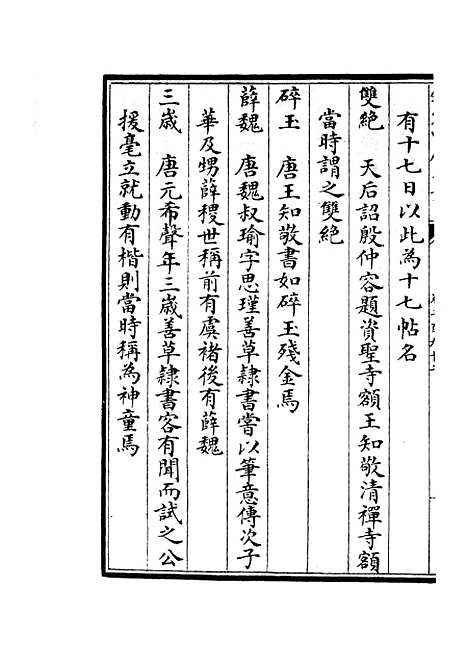 有十七日以此為十七帖名
雙絶　天后詔殷仲容題資聖寺額王知敬清禪寺額
當時謂之雙絶
碎玉　唐王知敬書如碎玉殘金焉
薛魏　唐魏叔瑜字思瑾善草隸書嘗以筆意傳次子
華及甥薛稷世稱前有虞褚後有薛魏
三歲　唐元希聲年三歲善草隸書客有聞而試之公
援毫立就動有楷則當時稱為神童焉